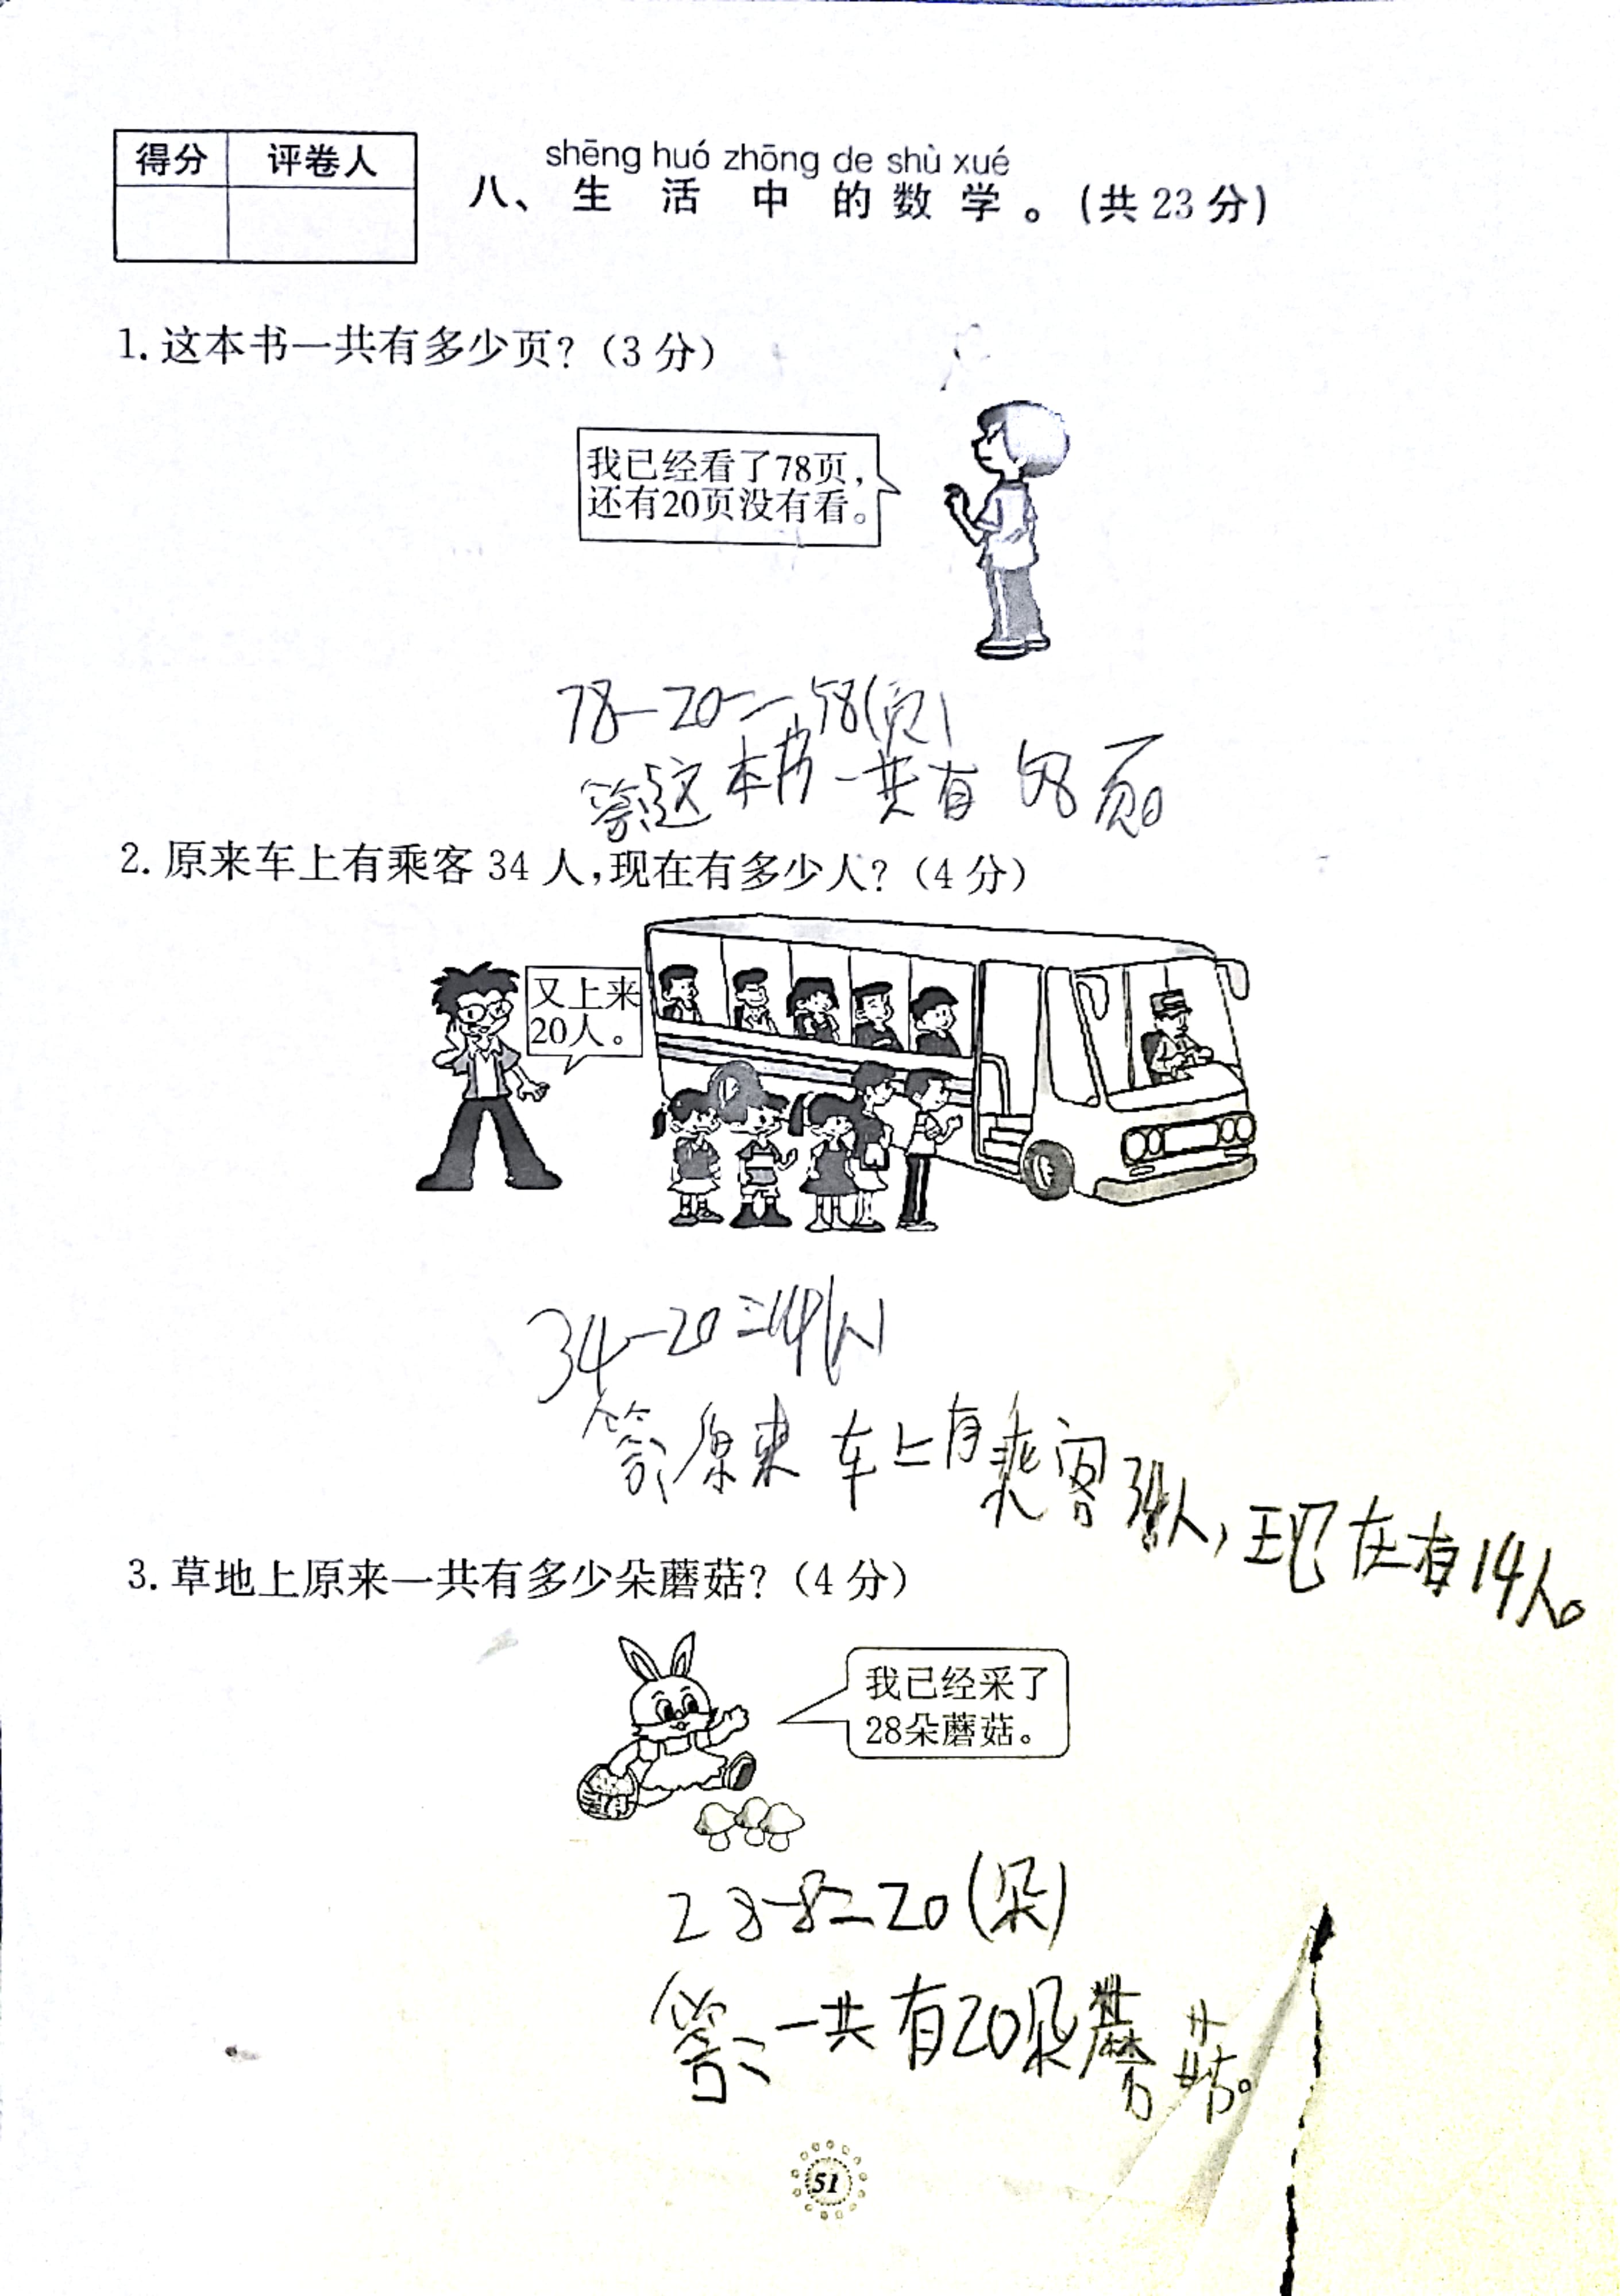 得分 评卷人
shēng huó zhōng de shù xué
八、生活中的数学。(共23分)
1. 这本书一共有多少页?(3分)
我已经看了78页,
还有20页没有看。
78-20=58(页)
答:这本书一共有58页。
2. 原来车上有乘客34人,现在有多少人?(4分)
又上来
20人。
34-20=14(人)
答:原来车上有乘客34人,现在有14人。
3. 草地上原来一共有多少朵蘑菇?(4分)
我已经采了
28朵蘑菇。
28-8=20(朵)
答:一共有20朵蘑菇。
51